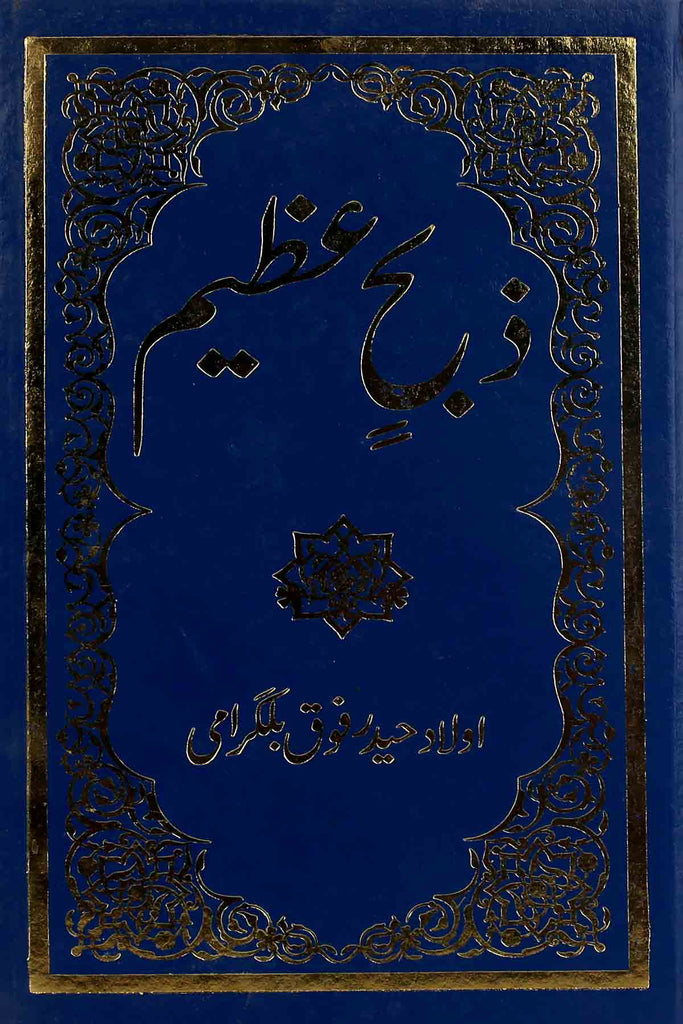 ذبحٍ عظیم
اولاد حیدر فوق بلگرامی